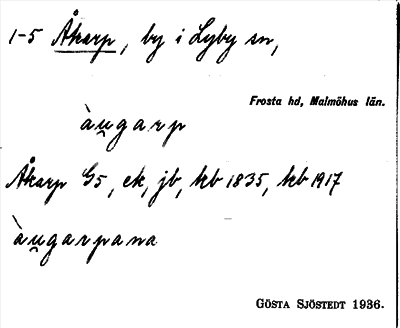 1-5 Åkarp, by i Lyby sn,
Frosta hd, Malmöhus län.
àu̯garp
Åkarp G5, ek, jb, kb 1835, kb 1917
àu̯garpana
GÖSTA SJÖSTEDT 1936.